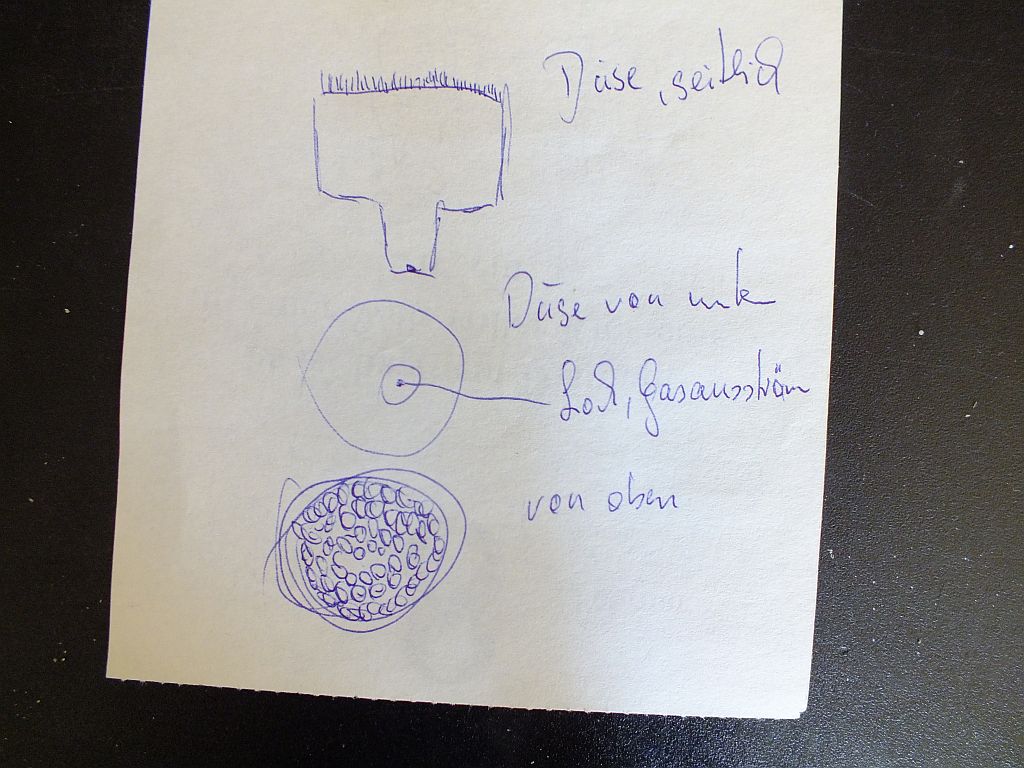 Düse, seitlich
Düse von unten
Loch, Gasausström
von oben